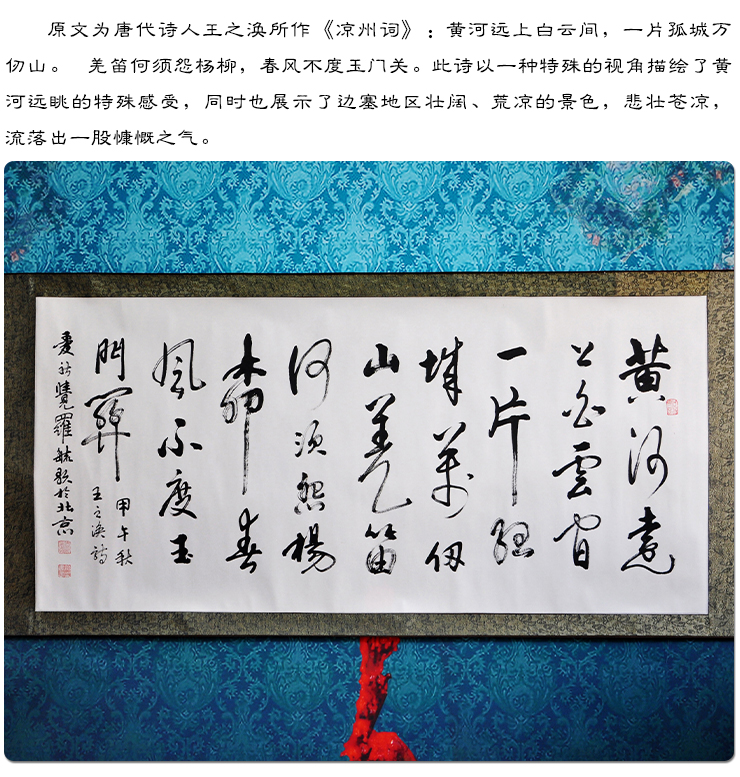 原文为唐代诗人王之涣所作《凉州词》:黄河远上白云间,一片孤城万
仞山。 羌笛何须怨杨柳,春风不度玉门关。此诗以一种特殊的视角描绘了黄
河远眺的特殊感受,同时也展示了边塞地区壮阔、荒凉的景色,悲壮苍凉,
流落出一股慷慨之气。
黄河遠
上白雲間
一片孤
城萬仞
山羌笛
何須怨楊
柳春
風不度玉
門關
甲午秋
王之渙詩
愛新覺羅毓歌於北京